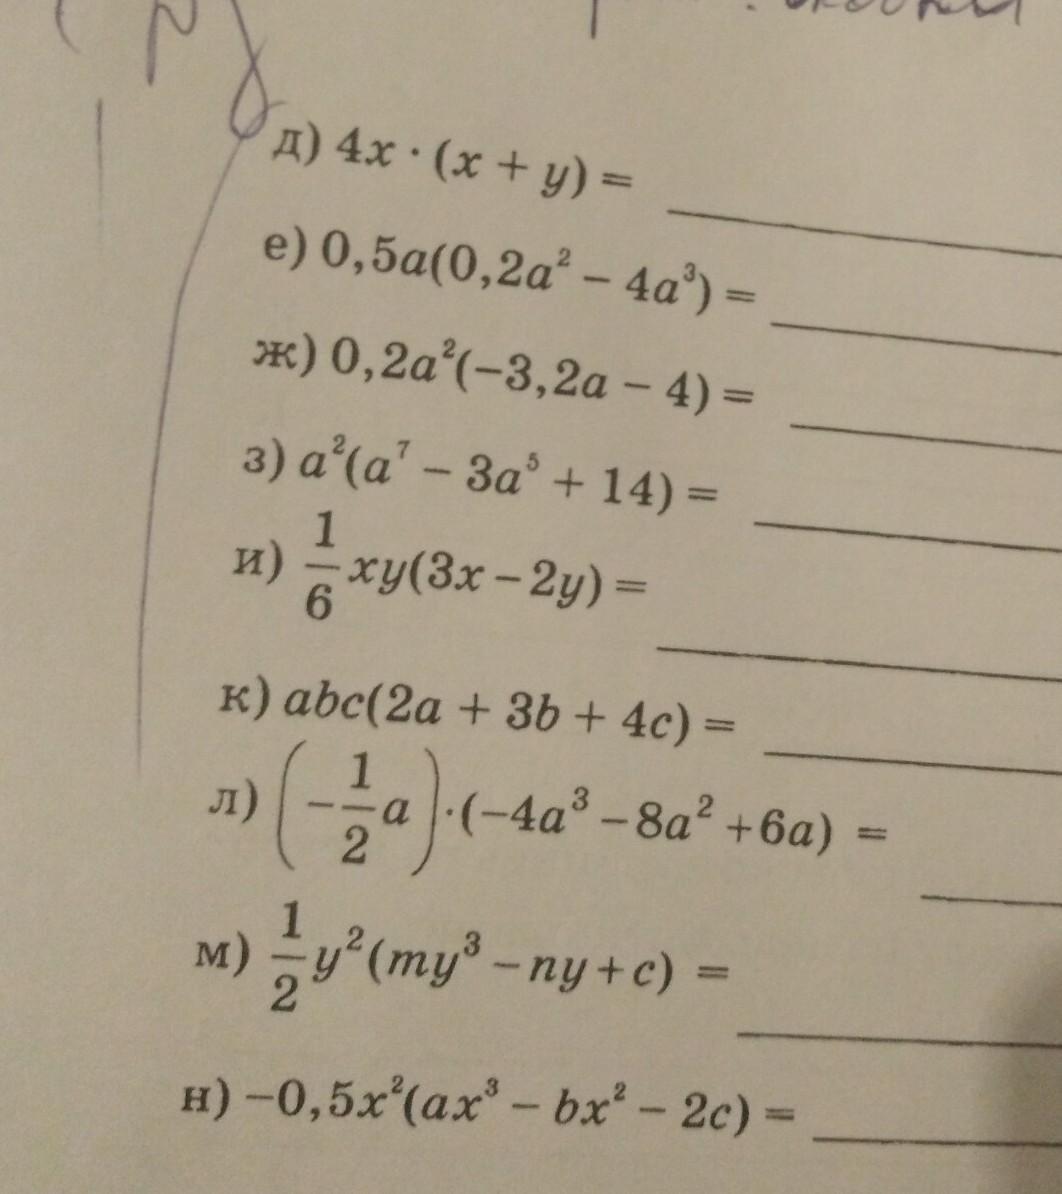 д) 4x · (x + y) =
е) 0,5a(0,2a² – 4a³) =
ж) 0,2a²(–3,2a – 4) =
з) a²(a⁷ – 3a⁵ + 14) =
и) 1/6 xy(3x – 2y) =
к) abc(2a + 3b + 4c) =
л) (–1/2 a) · (–4a³ – 8a² + 6a) =
м) 1/2 y²(my³ – ny + c) =
н) –0,5x²(ax³ – bx² – 2c) =